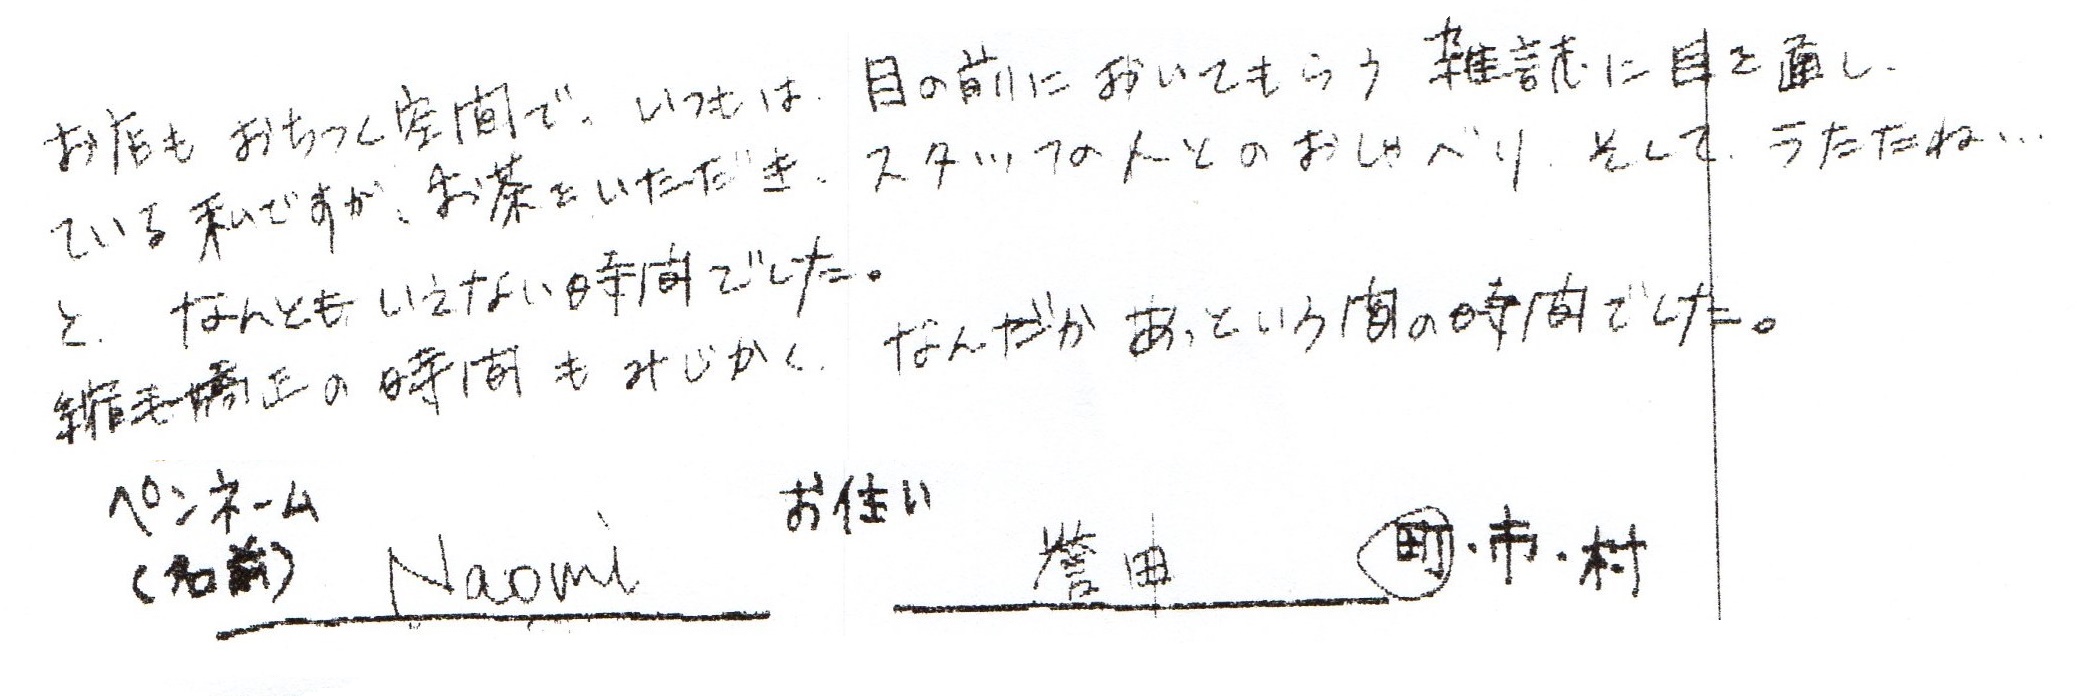 お店もおちつく空間で、いつもは、目の前においてもらう雑誌に目を通し、
ている私ですが、お茶をいただき、スタッフの人とのおしゃべり、そして、うたたね…
と、なんともいえない時間でした。
縮毛矯正の時間もみじかく、なんだかあっという間の時間でした。
ペンネーム
(名前) Naomi お住い 誉田 町・市・村